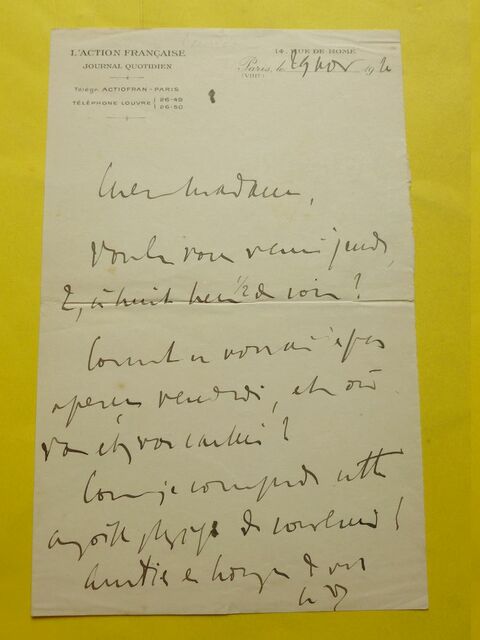 L'ACTION FRANÇAISE
JOURNAL QUOTIDIEN
Télégr. ACTIOFRAN - PARIS
TÉLÉPHONE LOUVRE 26-49
26-50
14, RUE DE ROME
Paris, le 29 nov 192
(VIIIe)
Chère Madame,
Voulez vous venir jeudi,
2, à huit heures 1/2 du soir ?
Comment ne vous ai je pas
aperçue vendredi, et où
vous étiez vous cachée ?
Comme je comprends cette
angoisse physique de
Amitiés et hommages de votre